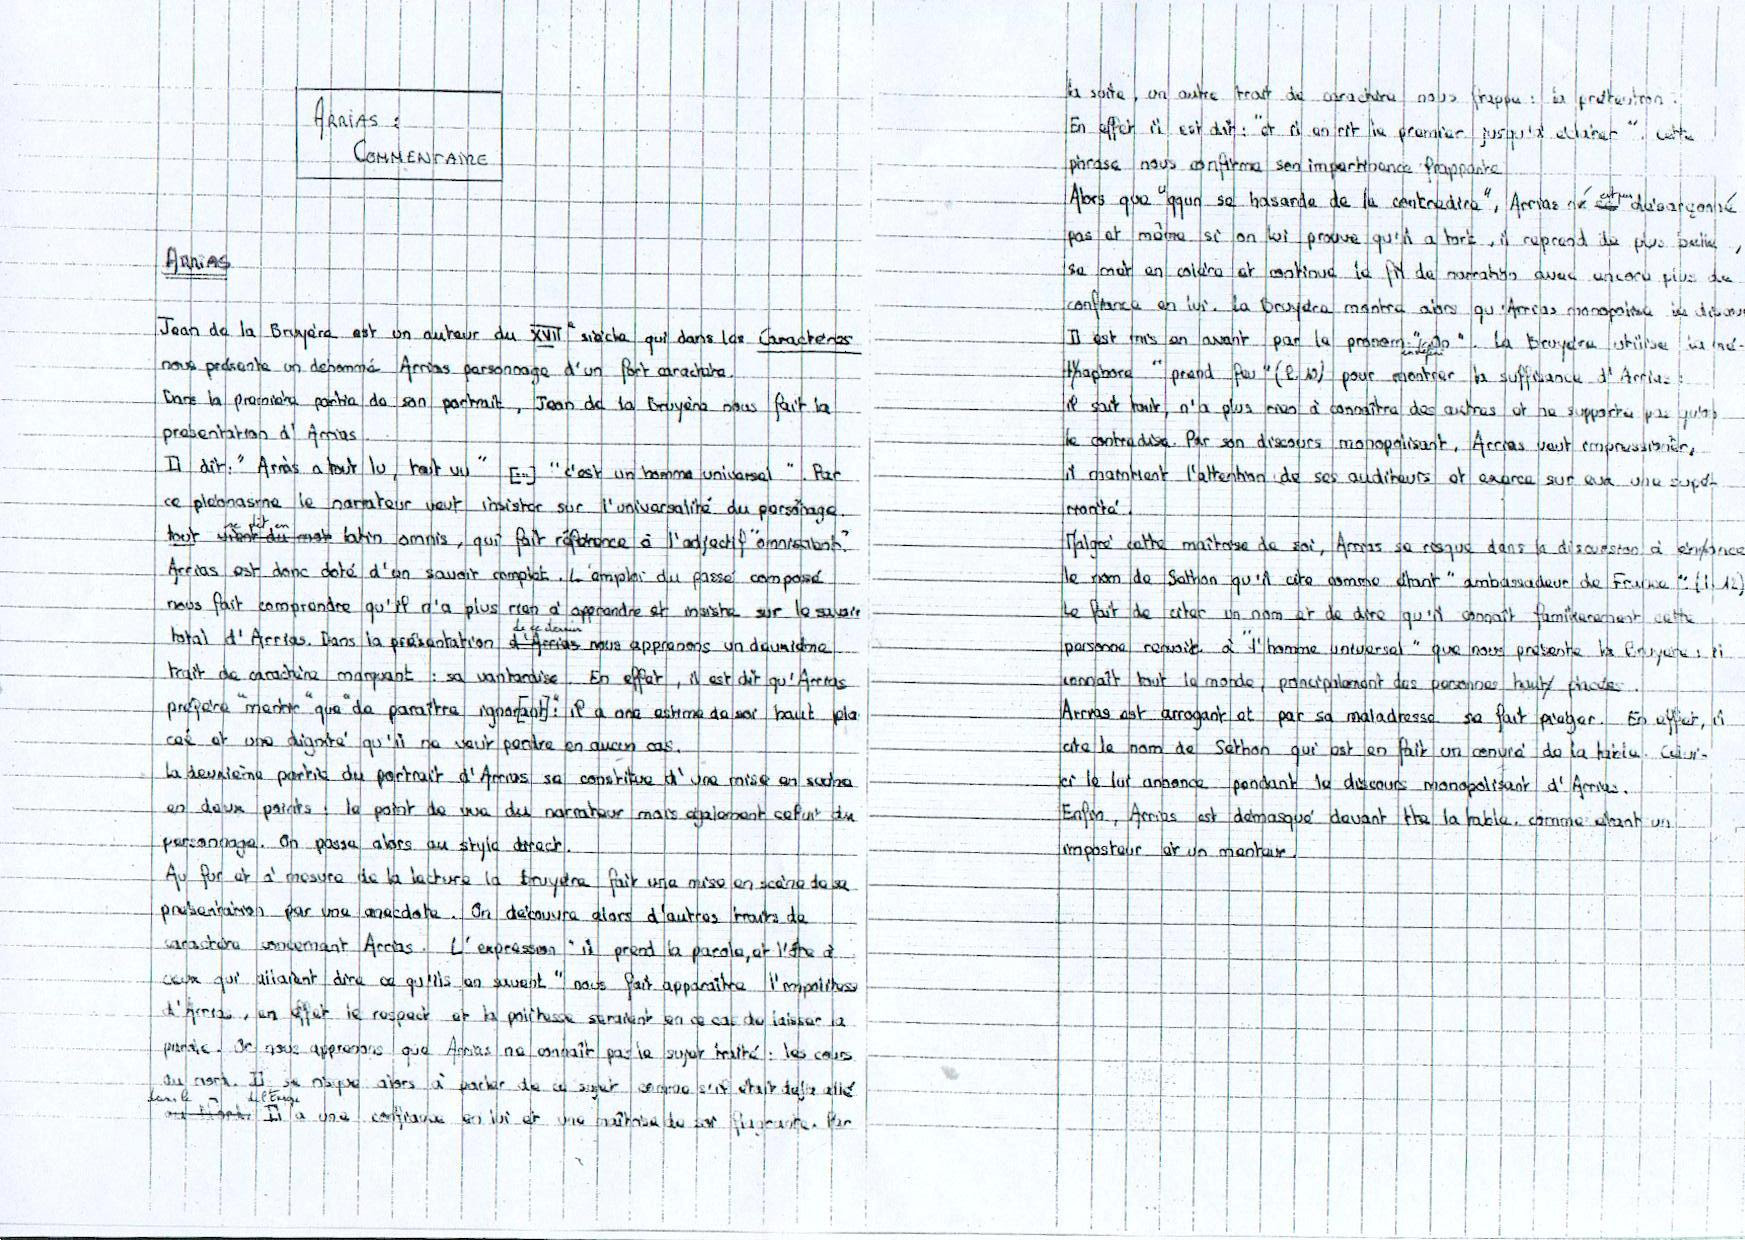 ARRIAS :
COMMENTAIRE
ARRIAS
Jean de la Bruyère est un auteur du XVII° siècle qui dans les Caractères
nous présente un dénommé Arrias personnage d'un fort caractère.
Dans la première partie de son portrait, Jean de la Bruyère nous fait la
présentation d'Arrias.
Il dit: "Arrias a tout lu, tout vu" [...] "c'est un homme universel". Par
ce pléonasme le narrateur veut insister sur l'universalité du personnage.
tout se dit en latin omnis, qui fait référence à l'adjectif "omniscient".
Arrias est donc doté d'un savoir complet. L'emploi du passé composé
nous fait comprendre qu'il n'a plus rien à apprendre et insiste sur le savoir
total d'Arrias. Dans la présentation de ce dernier nous apprenons un deuxième
trait de caractère marquant : sa vantardise. En effet, il est dit qu'Arrias
préfère "mentir" que "de paraître ignor[ant]": il a une estime de soi haut pla
cée et une dignité qu'il ne veut perdre en aucun cas.
la deuxième partie du portrait d'Arrias se constitue d'une mise en scène
en deux points : le point de vue du narrateur mais également celui du
personnage. On passe alors au style direct.
Au fur et à mesure de la lecture la Bruyère fait une mise en scène de sa
présentation par une anecdote. On découvre alors d'autres traits de
caractère concernant Arrias. L'expression "il prend la parole, et l'ôte à
ceux qui allaient dire ce qu'ils en savent" nous fait apparaître l'impolitesse
d'Arrias, en effet le respect et la politesse seraient en ce cas de laisser la
parole. Or nous apprenons que Arrias ne connaît pas le sujet traité : les cours
du nord. Il se risque alors à parler de ce sujet comme s'il était déjà allé
Il a une confiance en lui et une maîtrise de soi flagrante. Par
la suite, un autre trait de caractère nous frappe : la prétention.
En effet il est dit : "et il en rit le premier jusqu'à éclater". cette
phrase nous confirme son impertinence frappante
Alors que "qqun se hasarde de le contredire", Arrias n'est désarçonné
pas et même si on lui prouve qu'il a tort, il reprend de plus belle,
se met en colère et continue le fil de narration avec encore plus de
confiance en lui. la Bruyère montre alors qu'Arrias monopolise le discours
Il est mis en avant par le pronom indéfini "on". La Bruyère utilise la mé-
thaphore "prend feu" (l. 10) pour montrer la suffisance d'Arrias :
il sait tout, n'a plus rien à connaître des autres et ne supporte pas qu'on
le contredise. Par son discours monopolisant, Arrias veut impressionner,
il maintient l'attention de ses auditeurs et exerce sur eux une supé-
riorité.
Malgré cette maîtrise de soi, Arrias se risque dans la discussion à
le nom de Sethon qu'il cite comme étant "ambassadeur de France" (l. 12)
Le fait de citer un nom et de dire qu'il connaît familièrement cette
personne renvoit à "l'homme universel" que nous présente la Bruyère : il
connaît tout le monde, principalement des personnes hauts placées.
Arrias est arrogant et par sa maladresse se fait piéger. En effet, il
cite le nom de Sethon qui est en fait un convive de la table. Celui-
ci le lui annonce pendant le discours monopolisant d'Arrias.
Enfin, Arrias est démasqué devant tte la table, comme étant un
imposteur et un menteur.